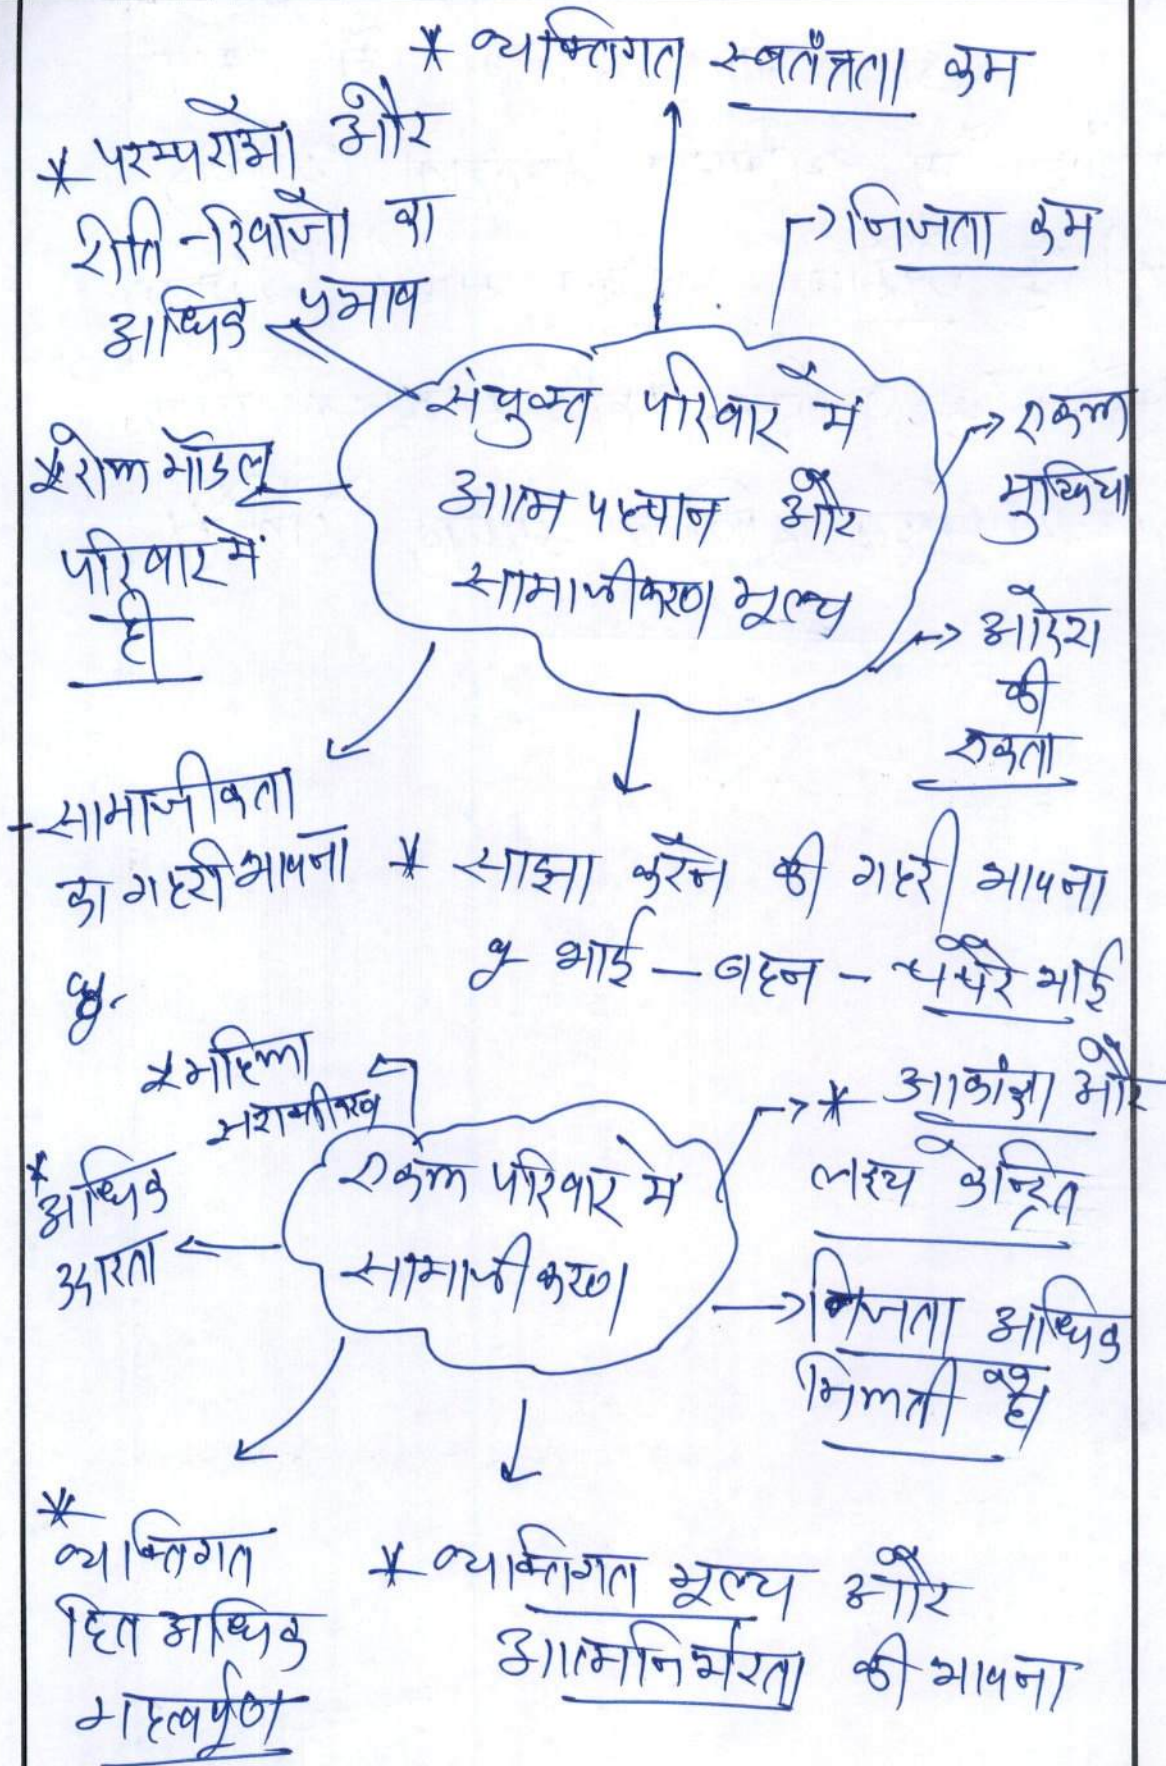 * व्यक्तिगत स्वतंत्रता कम
* परम्पराओं और
रीति-रिवाजों का
अधिक प्रभाव
→ निजता कम
संयुक्त परिवार में
आत्म पहचान और
सामाजीकरण मूल्य
→ एकल
मुखिया
* रोल मॉडल
परिवार में
ही
→ आदेश
की
एकता
- सामाजीकता
का गहरी भावना
* साझा करने की गहरी भावना
भाई - बहन - चचेरे भाई
* महिला
सशक्तीकरण
→ * आकांक्षा और
लक्ष्य केन्द्रित
एकल परिवार में
सामाजीकरण
* अधिक
उदारता
→ निजता अधिक
मिलती है।
*
व्यक्तिगत
हित अधिक
महत्वपूर्ण
* व्यक्तिगत मूल्य और
आत्मनिर्भरता की भावना